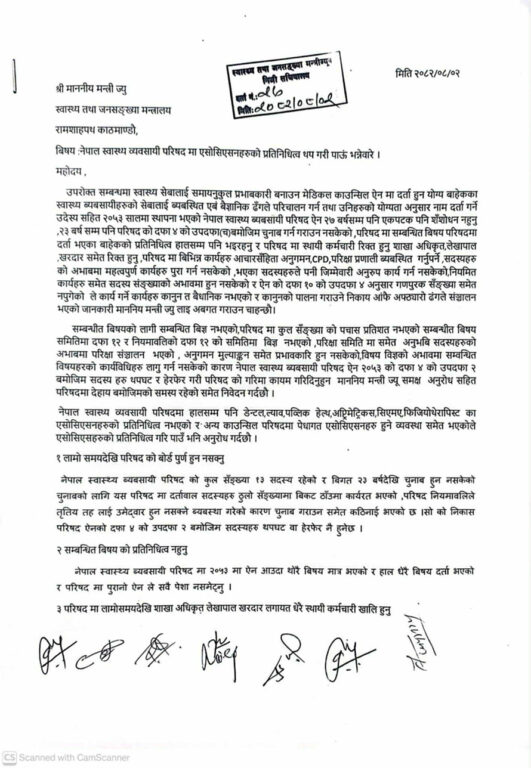 स्वास्थ्य तथा जनसङ्ख्या मन्त्रीज्यूको
निजी सचिवालय
दर्ता नं.: 26
मिति: 2082/08/02
मिति २०८२/०८/०२
श्री माननीय मन्त्री ज्यु
स्वास्थ्य तथा जनसङ्ख्या मन्त्रालय
रामशाहपथ काठमाण्डौ,
बिषय :नेपाल स्वास्थ्य व्यवसायी परिषद मा एसोसिएसनहरुको प्रतिनिधित्व थप गरी पाऊं भन्नेवारे ।
महोदय ,
उपरोक्त सम्बन्धमा स्वास्थ्य सेबालाई समायनुकुल प्रभाबकारी बनाउन मेडिकल काउन्सिल ऐन मा दर्ता हुन योग्य बाहेकका
स्वास्थ्य ब्यबसायीहरुको सेबालाई ब्यबस्थित एबं बैज्ञानिक ढँगले परिचालन गर्न तथा उनिहरुको योग्यता अनुसार नाम दर्ता गर्ने
उदेस्य सहित २०५३ सालमा स्थापना भएको नेपाल स्वास्थ्य ब्यबसायी परिषद ऐन २७ बर्षसम्म पनि एकपटक पनि शँशोधन नहुनु
,२३ बर्ष सम्म पनि परिषद को दफा ४ को उपदफा(च)बमोजिम चुनाब गर्न गराउन नसकेको ,परिषद मा सम्बन्धित बिषय परिषदमा
दर्ता भएका बाहेकको प्रतिनिधित्व हालसम्म पनि भइरहनु र परिषद मा स्थायी कर्मचारी रिक्त हुनु शाखा अधिकृत,लेखापाल
,खरदार समेत रिक्त हुनु ,परिषद मा बिभिन्न कार्यहरु आचारसँहिता अनुगमन,CPD,परिक्षा प्रणाली ब्यबस्थित गर्नुपर्ने ,सदस्यहरु
को अभाबमा महत्वपुर्ण कार्यहरु पुरा गर्न नसकेको ,भएका सदस्यहरुले पनी जिम्मेवारी अनुरुप कार्य गर्न नसकेको,नियमित
कार्यहरु समेत सदस्य संङ्ख्याको अभावमा हुन नसकेको र ऐन को दफा १० को उपदफा ४ अनुसार गणपुरक सँङ्ख्या समेत
नपुगेको ले कार्य गर्ने कार्यहरु कानुन त बैधानिक नभएको र कानुनको पालना गराउने निकाय आफै अफ्ठ्यारो ढंगले संञ्चालन
भएको जानकारी माननिय मन्त्रि ज्यु लाइ अबगत गराउन चाहन्छौ।
सम्बन्धीत बिषयको लागी सम्बन्धित बिज्ञ नभएको,परिषद मा कुल सँङ्ख्या को पचास प्रतिशत नभएको सम्बन्धीत बिषय
समितिमा दफा १२ र नियमावलिको दफा १२ को समितिमा बिज्ञ नभएको,परिक्षा समिति मा समेत अनुभबि सदस्यहरुको
अभाबमा परिक्षा संञ्चालन भएको , अनुगमन मुल्याङ्कन समेत प्रभावकारि हुन नसकेको,विषय विज्ञको अभावमा सम्वन्धित
विषयहरको कार्यविधिहरु लागु गर्न नसकेको कारण नेपाल स्वास्थ्य व्यवसायी परिषद ऐन २०५३ को दफा ४ को उपदफा २
बमोजिम सदस्य हरु थपघट र हेरफेर गरी परिषद को गरिमा कायम गरिदिनुहुन माननिय मन्त्री ज्यु समक्ष अनुरोध सहित
परिषदमा देहाय बमोजिमको समस्य रहेको समेत निवेदन गर्दछौ ।
नेपाल स्वास्थ्य व्यवसायी परिषदमा हालसम्म पनि डेन्टल,ल्याव,पव्लिक हेल्थ,अप्ट्रिमेट्रिकस,सिएमए,फिजियोथेरापिस्ट का
एसोसिएसनहरुको प्रतिनिधित्व नभएको र अन्य काउन्सिल परिषदमा पेधागत एसोसिएसनहरु हुने व्यवस्था समेत भएकोले
एसोसिएसहरुको प्रतिनिधित्व गरि पाउँ भनि अनुरोध गर्दछौ ।
१ लामो समयदेखि परिषद को बोर्ड पुर्ण हुन नसक्नु
नेपाल स्वास्थ्य ब्यबसायी परिषद को कुल सँङ्ख्या १३ सदस्य रहेको र बिगत २३ बर्षदेखी चुनाब हुन नसकेको
चुनाबको लागि यस परिषद मा दर्तावाल सदस्यहरु ठुलो सँङ्ख्यामा बिकट ठाँउमा कार्यरत भएको ,परिषद नियमावलिले
तृतिय तह लाई उमेदवार हुन नसक्ने ब्यबस्था गरेको कारण चुनाब गराउन समेत कठिनाई भएको छ ।सो को निकास
परिषद ऐनको दफा ४ को उपदफा २ बमोजिम सदस्यहरु थपघट वा हेरफेर नै हुनेछ ।
२ सम्बन्धित बिषय को प्रतिनिधित्व नहुनु
नेपाल स्वास्थ्य ब्यबसायी परिषद मा २०५३ मा ऐन आउदा थोरै बिषय मात्र भएको र हाल धेरै बिषय दर्ता भएको
र परिषद मा पुरानो ऐन ले सवै पेशा नसमेट्नु ।
३ परिषद मा लामोसमयदेखि शाखा अधिकृत लेखापाल खरदार लगायत धेरै स्थायी कर्मचारी खालि हुनु
CS Scanned with CamScanner